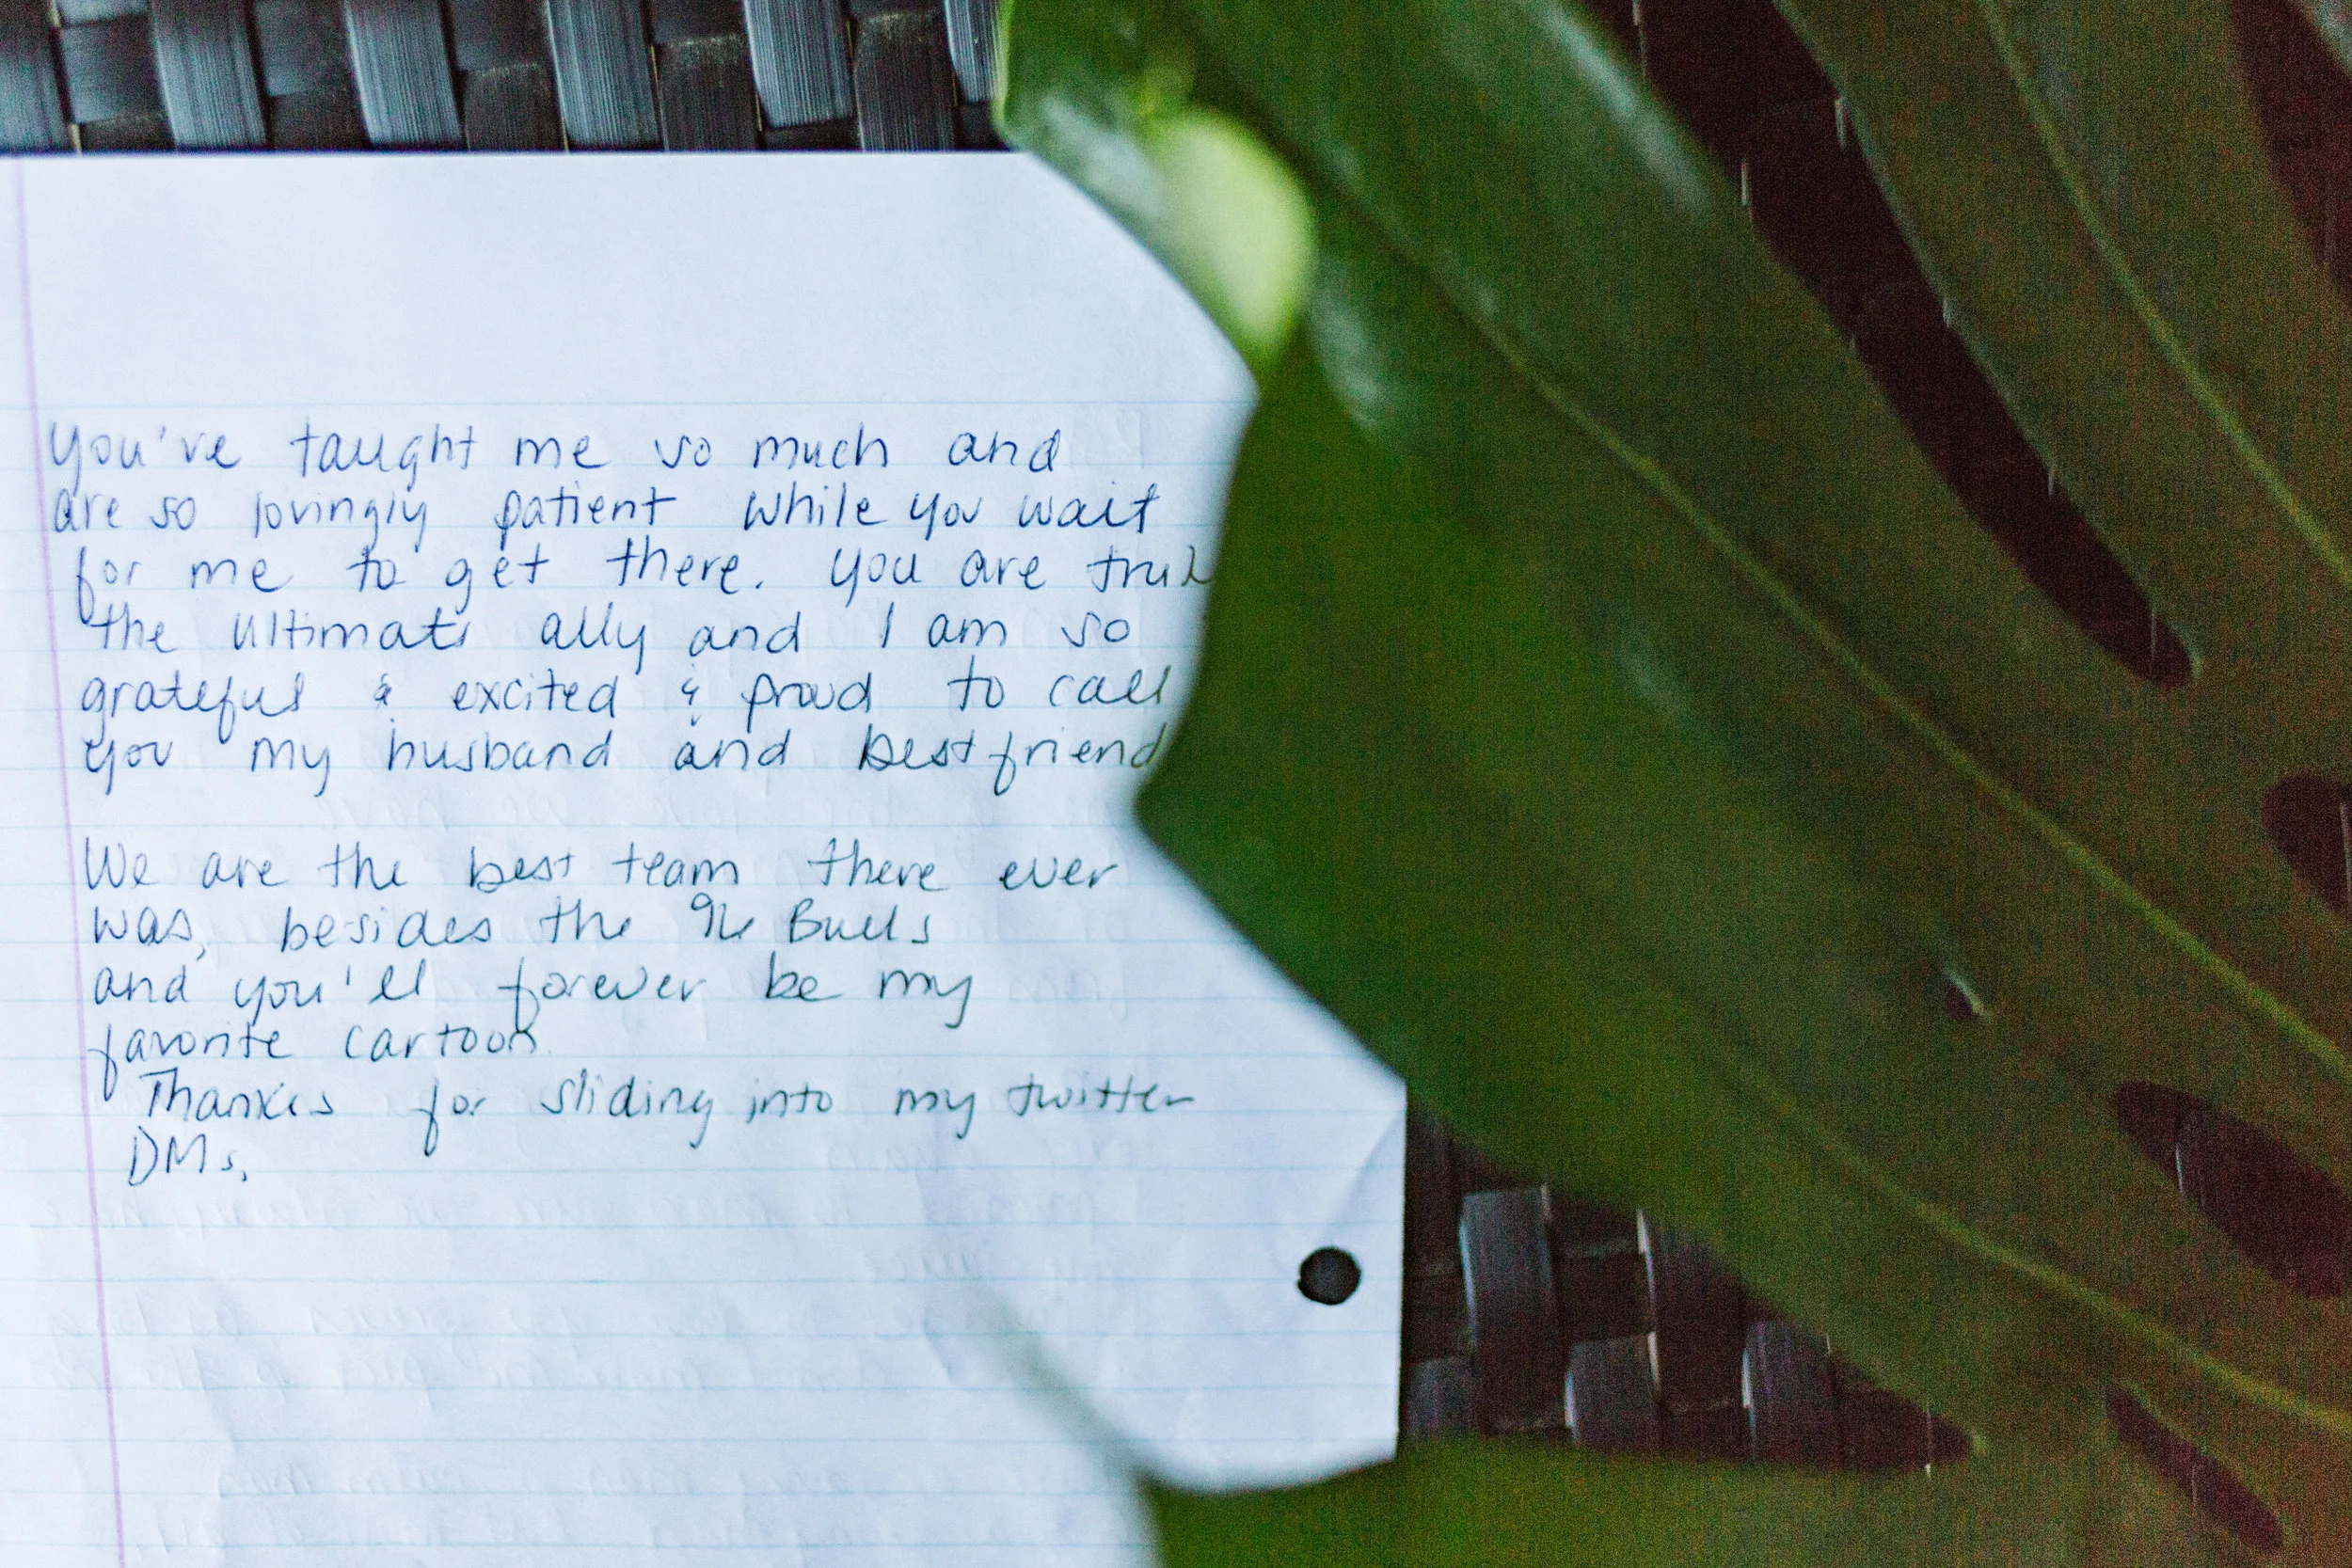 You've taught me so much and
are so lovingly patient while you wait
for me to get there. You are
the ultimate ally and I am so
grateful & excited & proud to call
you my husband and bestfriend
We are the best team there ever
was, besides the 96 Bulls
and you'll forever be my
favorite cartoon.
Thanks for sliding into my twitter
DMs.